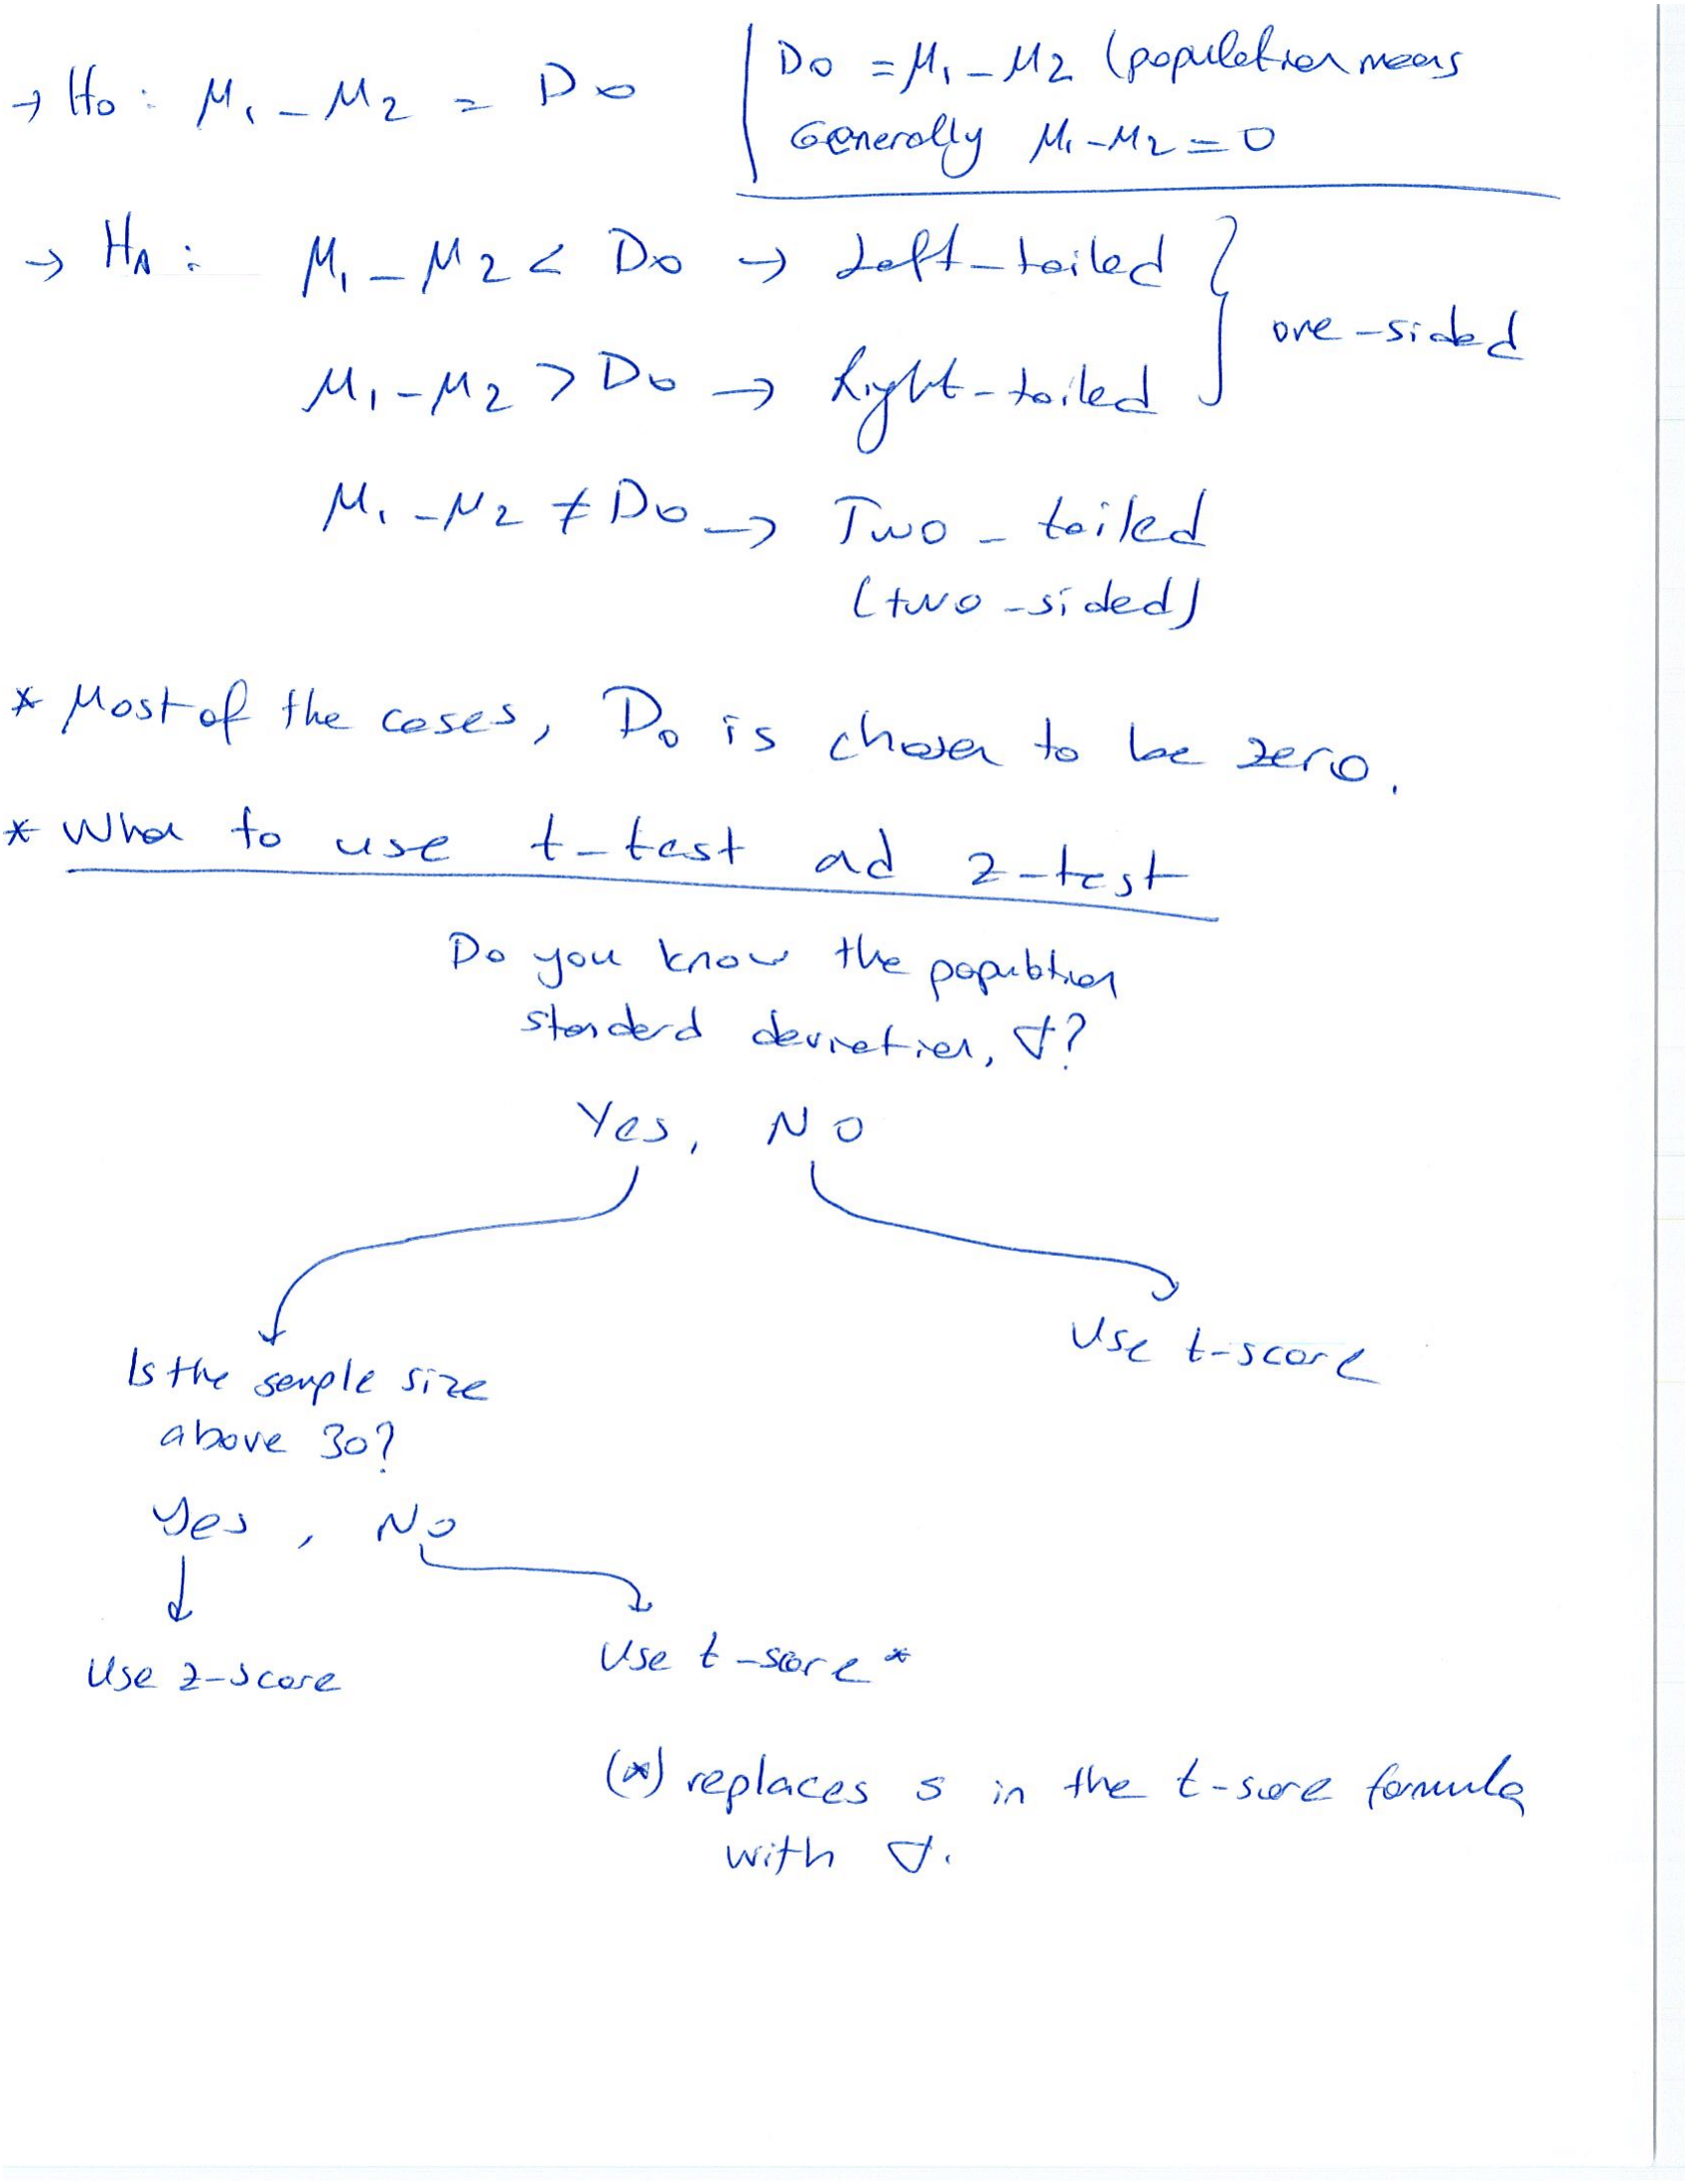 → H₀ : μ₁ - μ₂ = D₀
D₀ = μ₁ - μ₂ (population means
Generally μ₁ - μ₂ = 0
→ Hₐ : μ₁ - μ₂ < D₀ → Left-tailed
μ₁ - μ₂ > D₀ → Right-tailed
one-sided
μ₁ - μ₂ ≠ D₀ → Two-tailed
(two-sided)
* Most of the cases, D₀ is chosen to be zero.
* When to use t-test and z-test
Do you know the population
standard deviation, σ?
Yes, No
Use t-score
Is the sample size
above 30?
Yes, No
Use z-score
Use t-score*
(*) replaces s in the t-score formula
with σ.